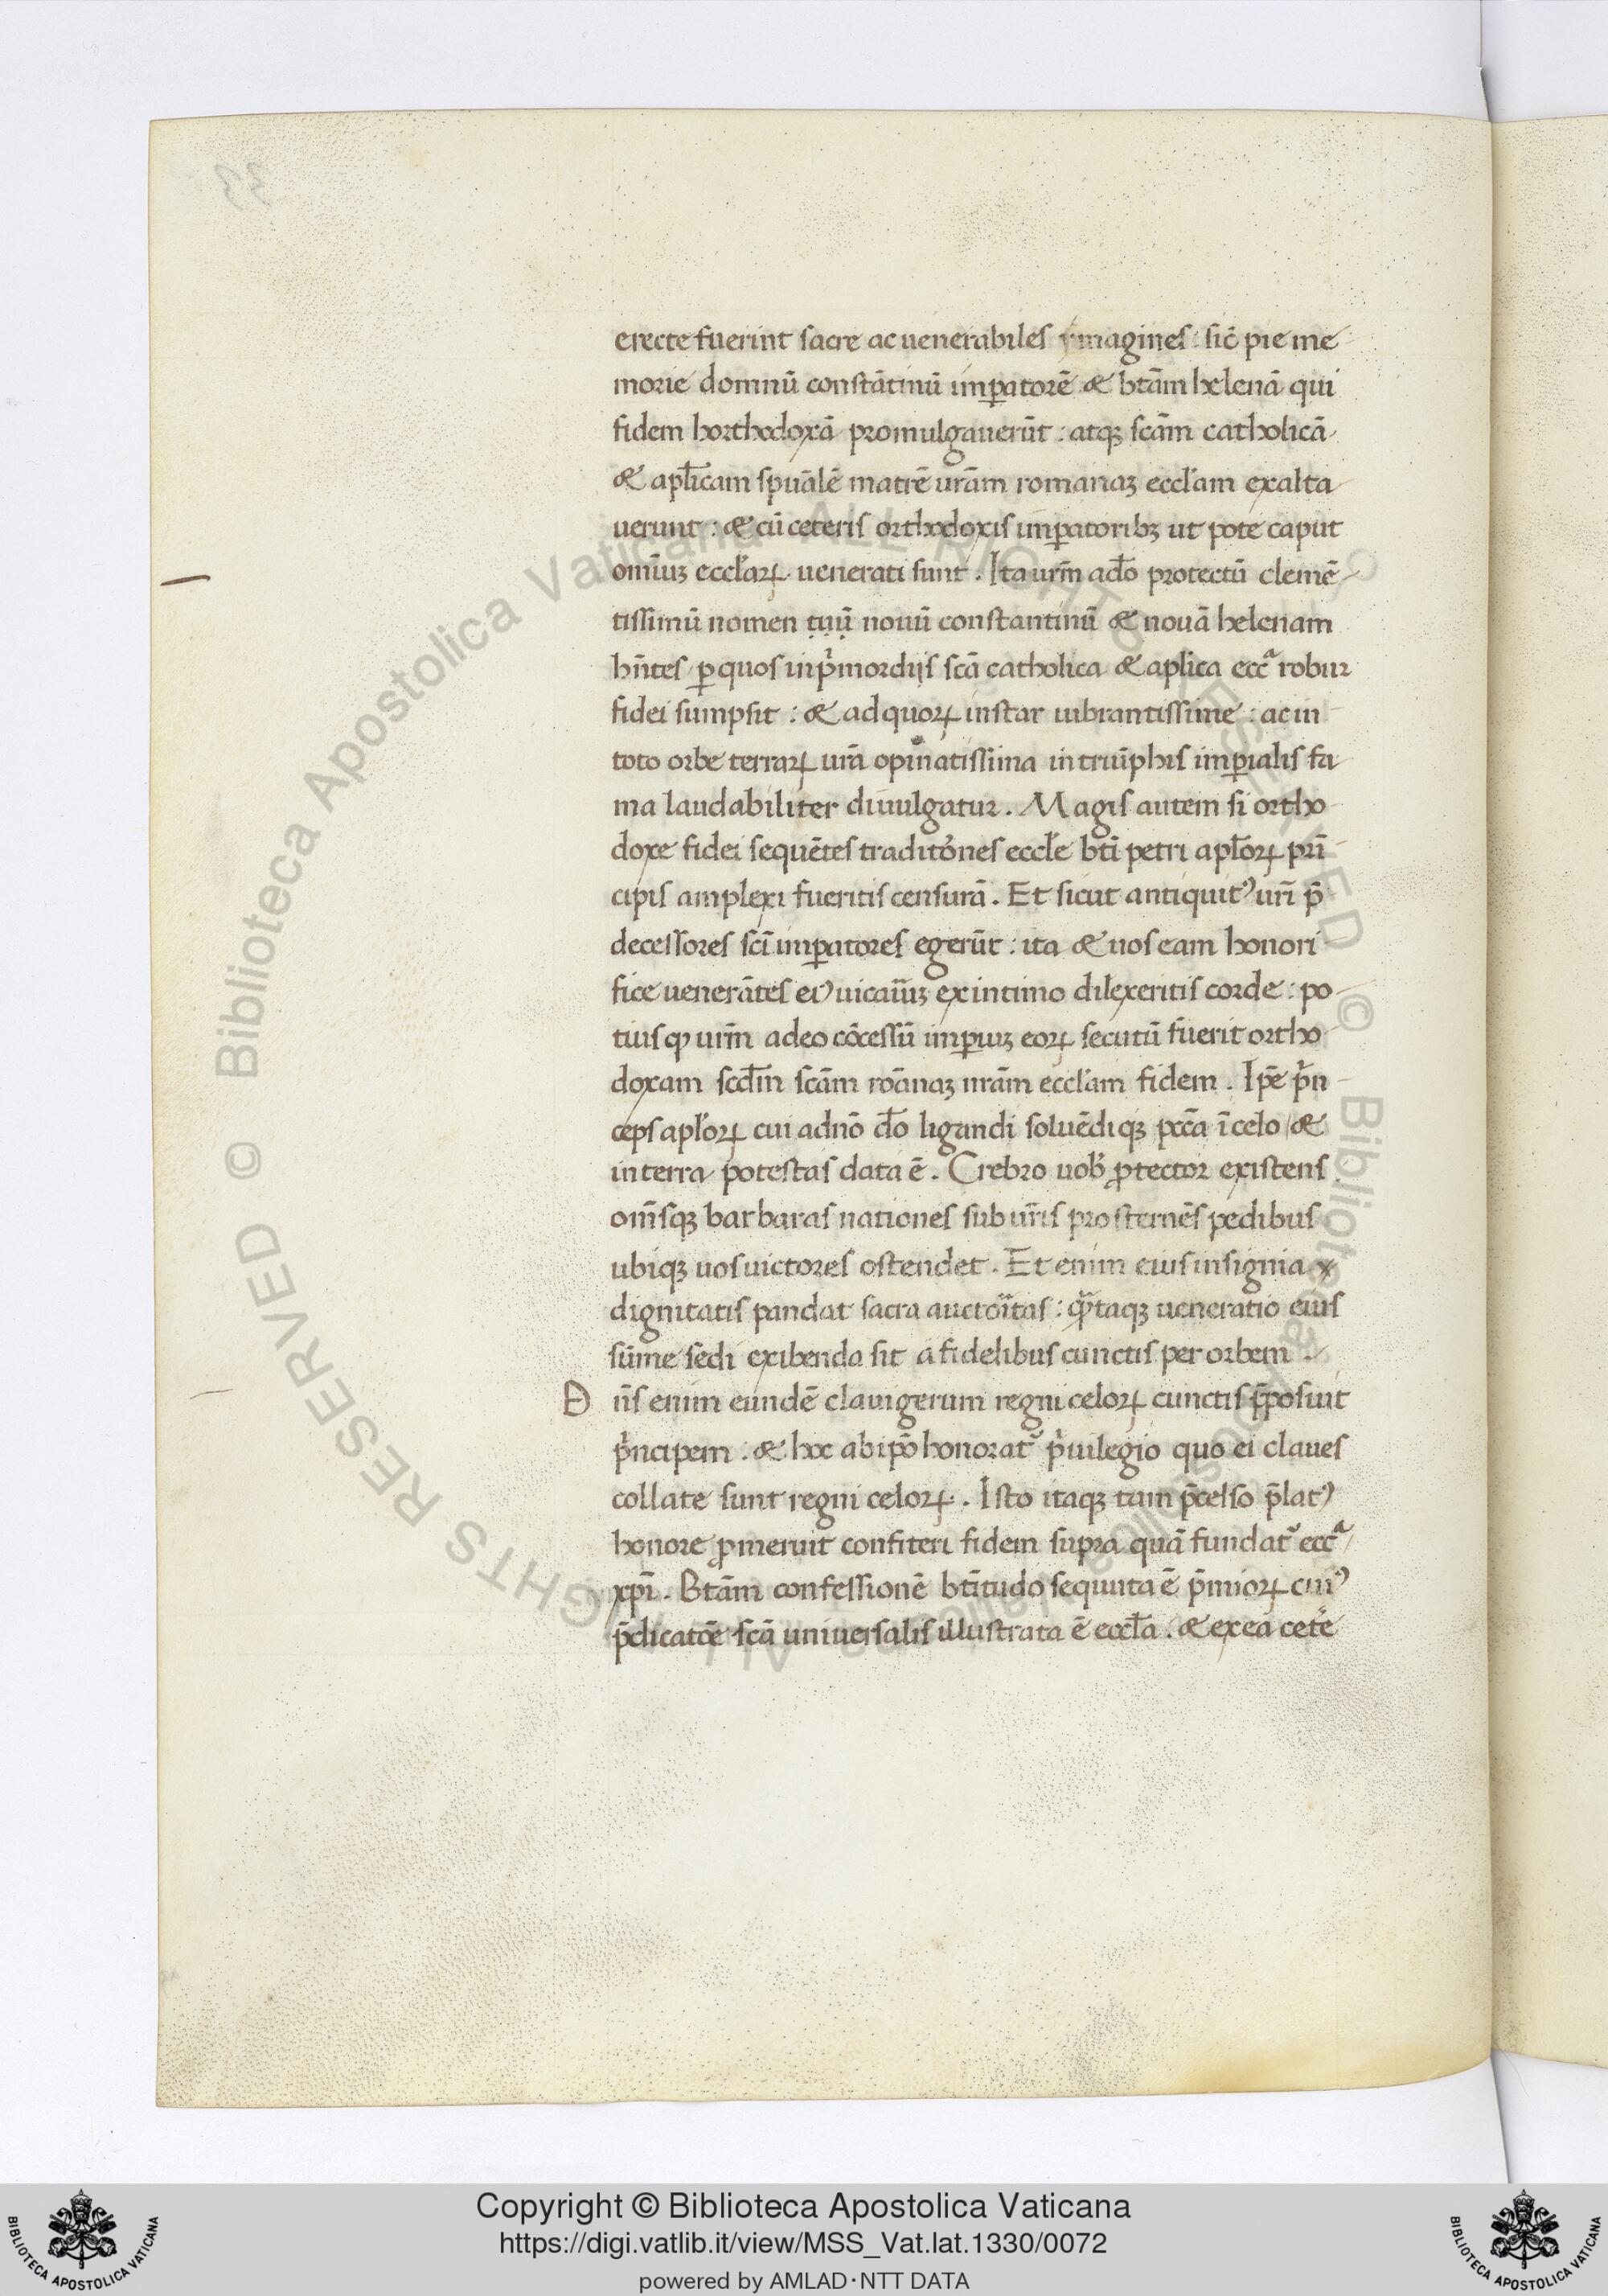 erecte fuerint sacre ac uenerabiles ymagines : sic̄ pie me
morie domnū constātinū imꝑatorē & btām helenā qui
fidem horthodoxā promulgauerūt : atqꝫ scām catholicā
& apl̄icam spuālē matrē urām romanaꝫ eccl̓am exalta
uerunt : & cū ceteris orthodoxis imꝑatoribꝫ ut pote caput
omīuꝫ eccl̓aꝝ uenerati sunt . Ita urm̄ ad̄o protectū clemē
tissimū nomen tuū nouū constantinū & nouā helenam
hn̄tes ꝑ quos in pͥmordijs scā catholica & apl̓ica eccᵃ robur
fidei sumpsit : & ad quoꝝ instar uibrantissime : ac in
toto orbe terraꝝ urā opinatissima in triūphis imꝑialis fa
ma laudabiliter diuulgatur . Magis autem si ortho
doxe fidei sequētes traditōnes eccl̓e bt̄i petri apl̄oꝝ prī
cipis amplexi fueritis censurā . Et sicut antiquitꝰ urī p̄
decessores scī imꝑatores egerūt : ita & uos eam honori
fice uenerātes eiꝰ uicariuꝫ ex intimo dilexeritis corde : po
tiusqꝫ urm̄ adeo cōcessū imꝑiuꝫ eoꝝ secutū fuerit ortho
doxam scdm̄ scām roānaꝫ nrām eccl̓am fidem . Ipē pͥn
ceps apl̓oꝝ cui a dnō d̄o ligandi soluēdiqꝫ pccā ī celo / &
in terra potestas data ē . Crebro uob̓ ꝓtector existens
omīsqꝫ barbaras nationes sub urīs prosternēs pedibus
ubiqꝫ uos uictores ostendet . Et enim eius insignia x
dignitatis pandat sacra auctoritas : q̄ᷓtaqꝫ ueneratio eius
sūme sedi exibenda sit a fidelibus cunctis per orbem .
D n̄s enim eundē clauigerum regni celoꝝ cunctis p̄posuit
pͥncipem : & hoc ab ipō honorat᷑ pͥuilegio quo ei claues
collate sunt regni celoꝝ . Isto itaqꝫ tam p̄celso p̄latꝰ
honore ꝓmeruit confiteri fidem supra quā fundat᷑ eccᵃ /
xpī . Btām confessionē btītudo sequuta ē p̄mioꝝ cuiꝰ
p̄dicatōe scā uniuersalis illustrata ē eccl̄a . & ex ea cetͤe
Copyright © Biblioteca Apostolica Vaticana
https://digi.vatlib.it/view/MSS_Vat.lat.1330/0072
powered by AMLAD·NTT DATA
BIBLIOTECA APOSTOLICA VATICANA
BIBLIOTECA APOSTOLICA VATICANA
© Biblioteca Apostolica Vaticana ALL RIGHTS RESERVED © Biblioteca Apostolica Vaticana ALL RIGHTS RESERVED